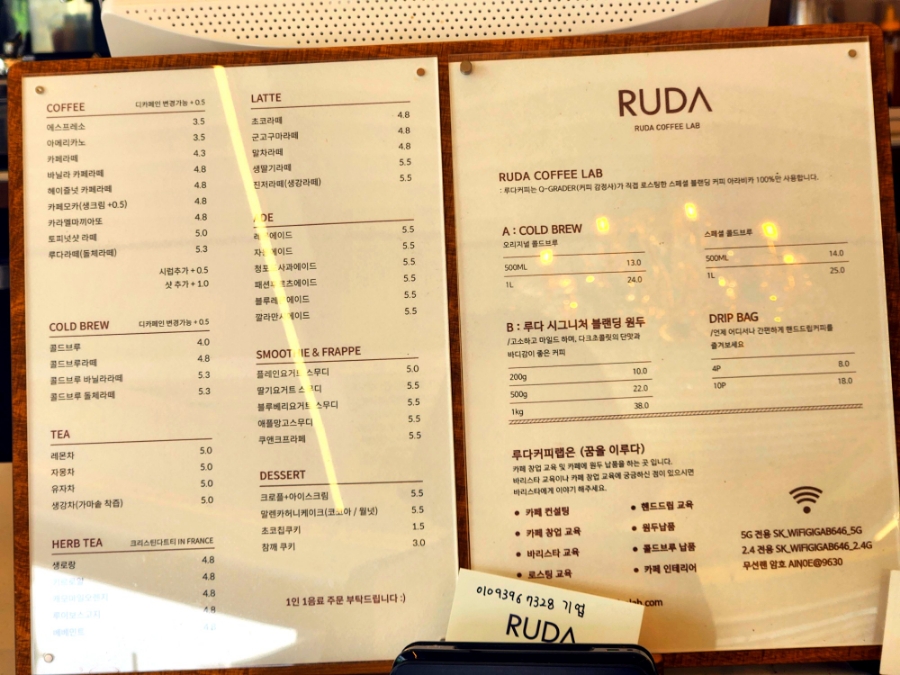 COFFEE 디카페인 변경가능 + 0.5
에스프레소 3.5
아메리카노 3.5
카페라떼 4.3
바닐라 카페라떼 4.8
헤이즐넛 카페라떼 4.8
카페모카(생크림 +0.5) 4.8
카라멜마끼아또 4.8
토피넛샷 라떼 5.0
루다라떼(돌체라떼) 5.3
시럽추가 + 0.5
샷 추가 + 1.0
COLD BREW 디카페인 변경가능 + 0.5
콜드브루 4.0
콜드브루라떼 4.8
콜드브루 바닐라라떼 5.3
콜드브루 돌체라떼 5.3
TEA
레몬차 5.0
자몽차 5.0
유자차 5.0
생강차(가마솥 착즙) 5.0
HERB TEA 크리스틴다트티 IN FRANCE
생로랑 4.8
4.8
4.8
4.8
LATTE
초코라떼 4.8
군고구마라떼 4.8
말차라떼 4.8
생딸기라떼 5.5
진저라떼(생강라떼) 5.5
에이드 5.5
에이드 5.5
사과에이드 5.5
에이드 5.5
블루레 에이드 5.5
깔라만 에이드 5.5
SMOOTHIE & FRAPPE
플레인요거트 스무디 5.0
딸기요거트 스무디 5.5
블루베리요거트 스무디 5.5
애플망고스무디 5.5
쿠앤크프라페 5.5
DESSERT
크로플+아이스크림 5.5
말렌카허니케이크(코코아 / 월넛) 5.5
초코칩쿠키 1.5
참깨 쿠키 3.0
1인 1음료 주문 부탁드립니다 :)
RUDA
RUDA COFFEE LAB
RUDA COFFEE LAB
: 루다커피는 Q-GRADER(커피 감정사)가 직접 로스팅한 스페셜 블랜딩 커피 아라비카 100%만 사용합니다.
A : COLD BREW
오리지널 콜드브루
500ML 13.0
1L 24.0
스페셜 콜드브루
500ML 14.0
1L 25.0
B : 루다 시그니처 블랜딩 원두
/고소하고 마일드 하며, 다크초콜릿의 단맛과
바디감이 좋은 커피
200g 10.0
500g 22.0
1kg 38.0
DRIP BAG
/언제 어디서나 간편하게 핸드드립커피를
즐겨보세요
4P 8.0
10P 18.0
루다커피랩은 (꿈을 이루다)
카페 창업 교육 및 카페에 원두 납품을 하는 곳 입니다.
바리스타 교육이나 카페 창업 교육에 궁금하신 점이 있으시면
바리스타에게 이야기 해주세요.
• 카페 컨설팅
• 카페 창업 교육
• 바리스타 교육
• 로스팅 교육
• 핸드드립 교육
• 원두납품
• 콜드브루 납품
• 카페 인테리어
5G 전용 SK_WIFIGIGAB646_5G
2.4 전용 SK_WIFIGIGAB646_2.4G
무선랜 암호 AIN0E@9630
lab.com
01093967328 기업
RUDA